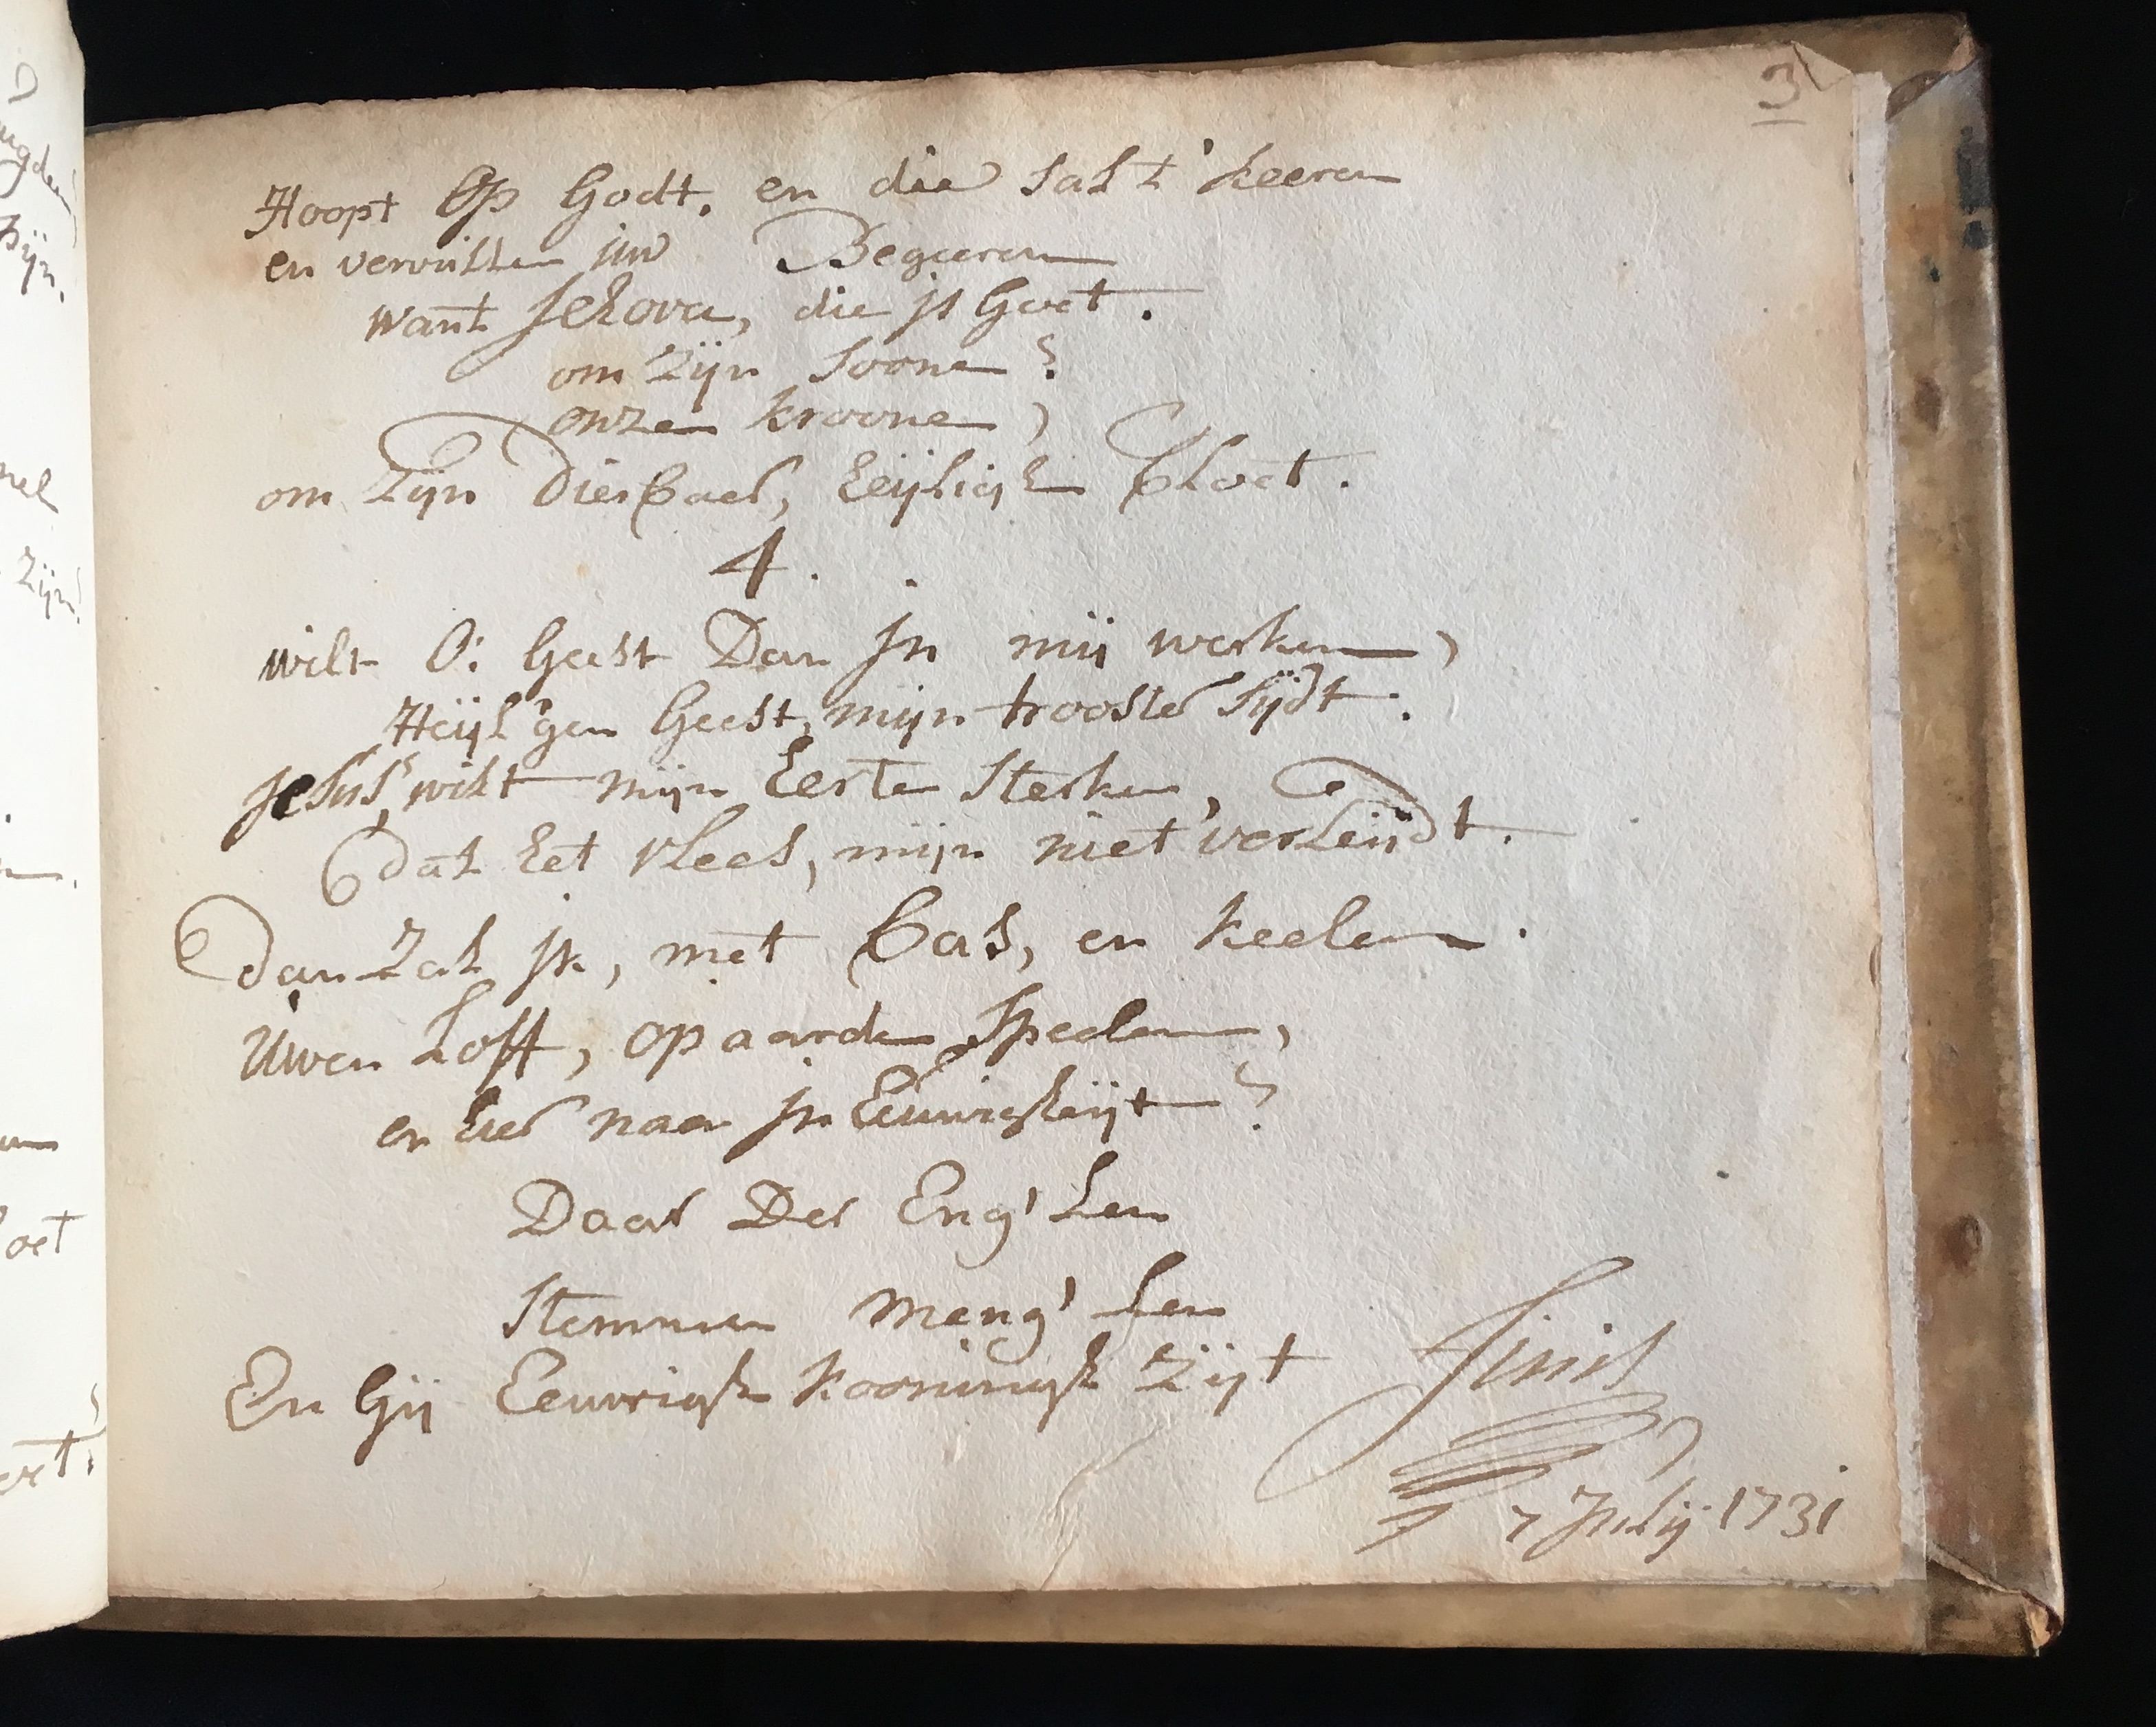 3
Hoopt Op Godt, en die sal t' keeren
en vervullen uw Begeeren
want Jehova, die is Goet.
om Zijn Soone
onzen kroone
om Zijn Dierbaer, heijligh bloet.
4.
wilt O: Geest Dan In mij werken
Heijl'gen Geest, mijn trooster sijdt.
Jesus, wilt mijn herte sterken,
dat het vlees, mijn niet verleijdt.
Dan Zal ik, met bas, en keelen.
Uwen Loff, op aarden speelen,
en hier naer In Eeuwigheijt
Daar Der Eng'len
Stemmen meng'len
En Gij Eeuwigh kooningh Zijt
finis
7 Julij 1731